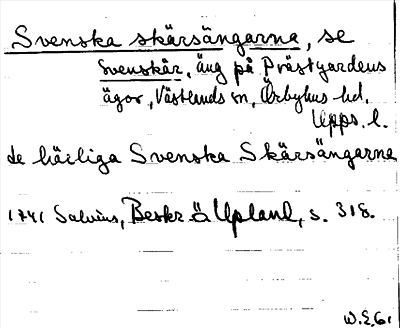 Svenska skärsängarna, se
Svenskär, äng på Prästgardens
ägor, Västlands sn, Örbyhus hd,
Upps. l.
de härliga Svenska Skärsängarna
1741 Salvius, Beskr. ö. Upland, s. 318.
W.E.61